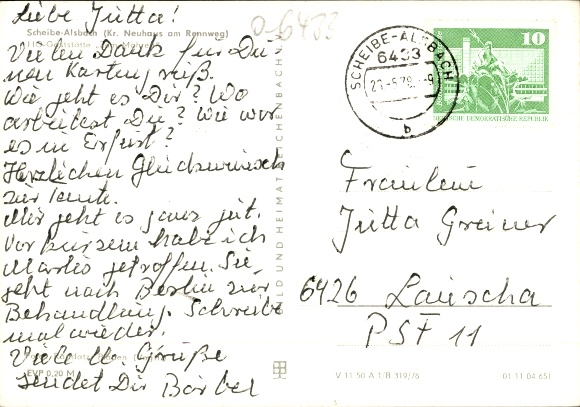 Liebe Jutta!
0-6433
Scheibe-Alsbach (Kr. Neuhaus am Rennweg)
HO-Gaststätte
Vielen Dank für Dei
nen Kartengruß.
Wie geht es Dir? Wo
arbeitest Du? Wie war
es in Erfurt?
Herzlichen Glückwunsch
zur Tante.
Mir geht es ganz gut.
Vor kurzem habe ich
Marlis getroffen. Sie
geht nach Berlin zur
Behandlung. Schreibe
mal wieder.
Viele l. Grüße
EVP 0,20 M
sendet Dir Bärbel
BILD UND HEIMAT REICHENBACH
SCHEIBE-ALSBACH
6433
-9
b
10
DEUTSCHE DEMOKRATISCHE REPUBLIK
Fräulein
Jutta Greiner
6426 Lauscha
PSF 11
V 11 50 A 1/B 319/78
01 11 04 651